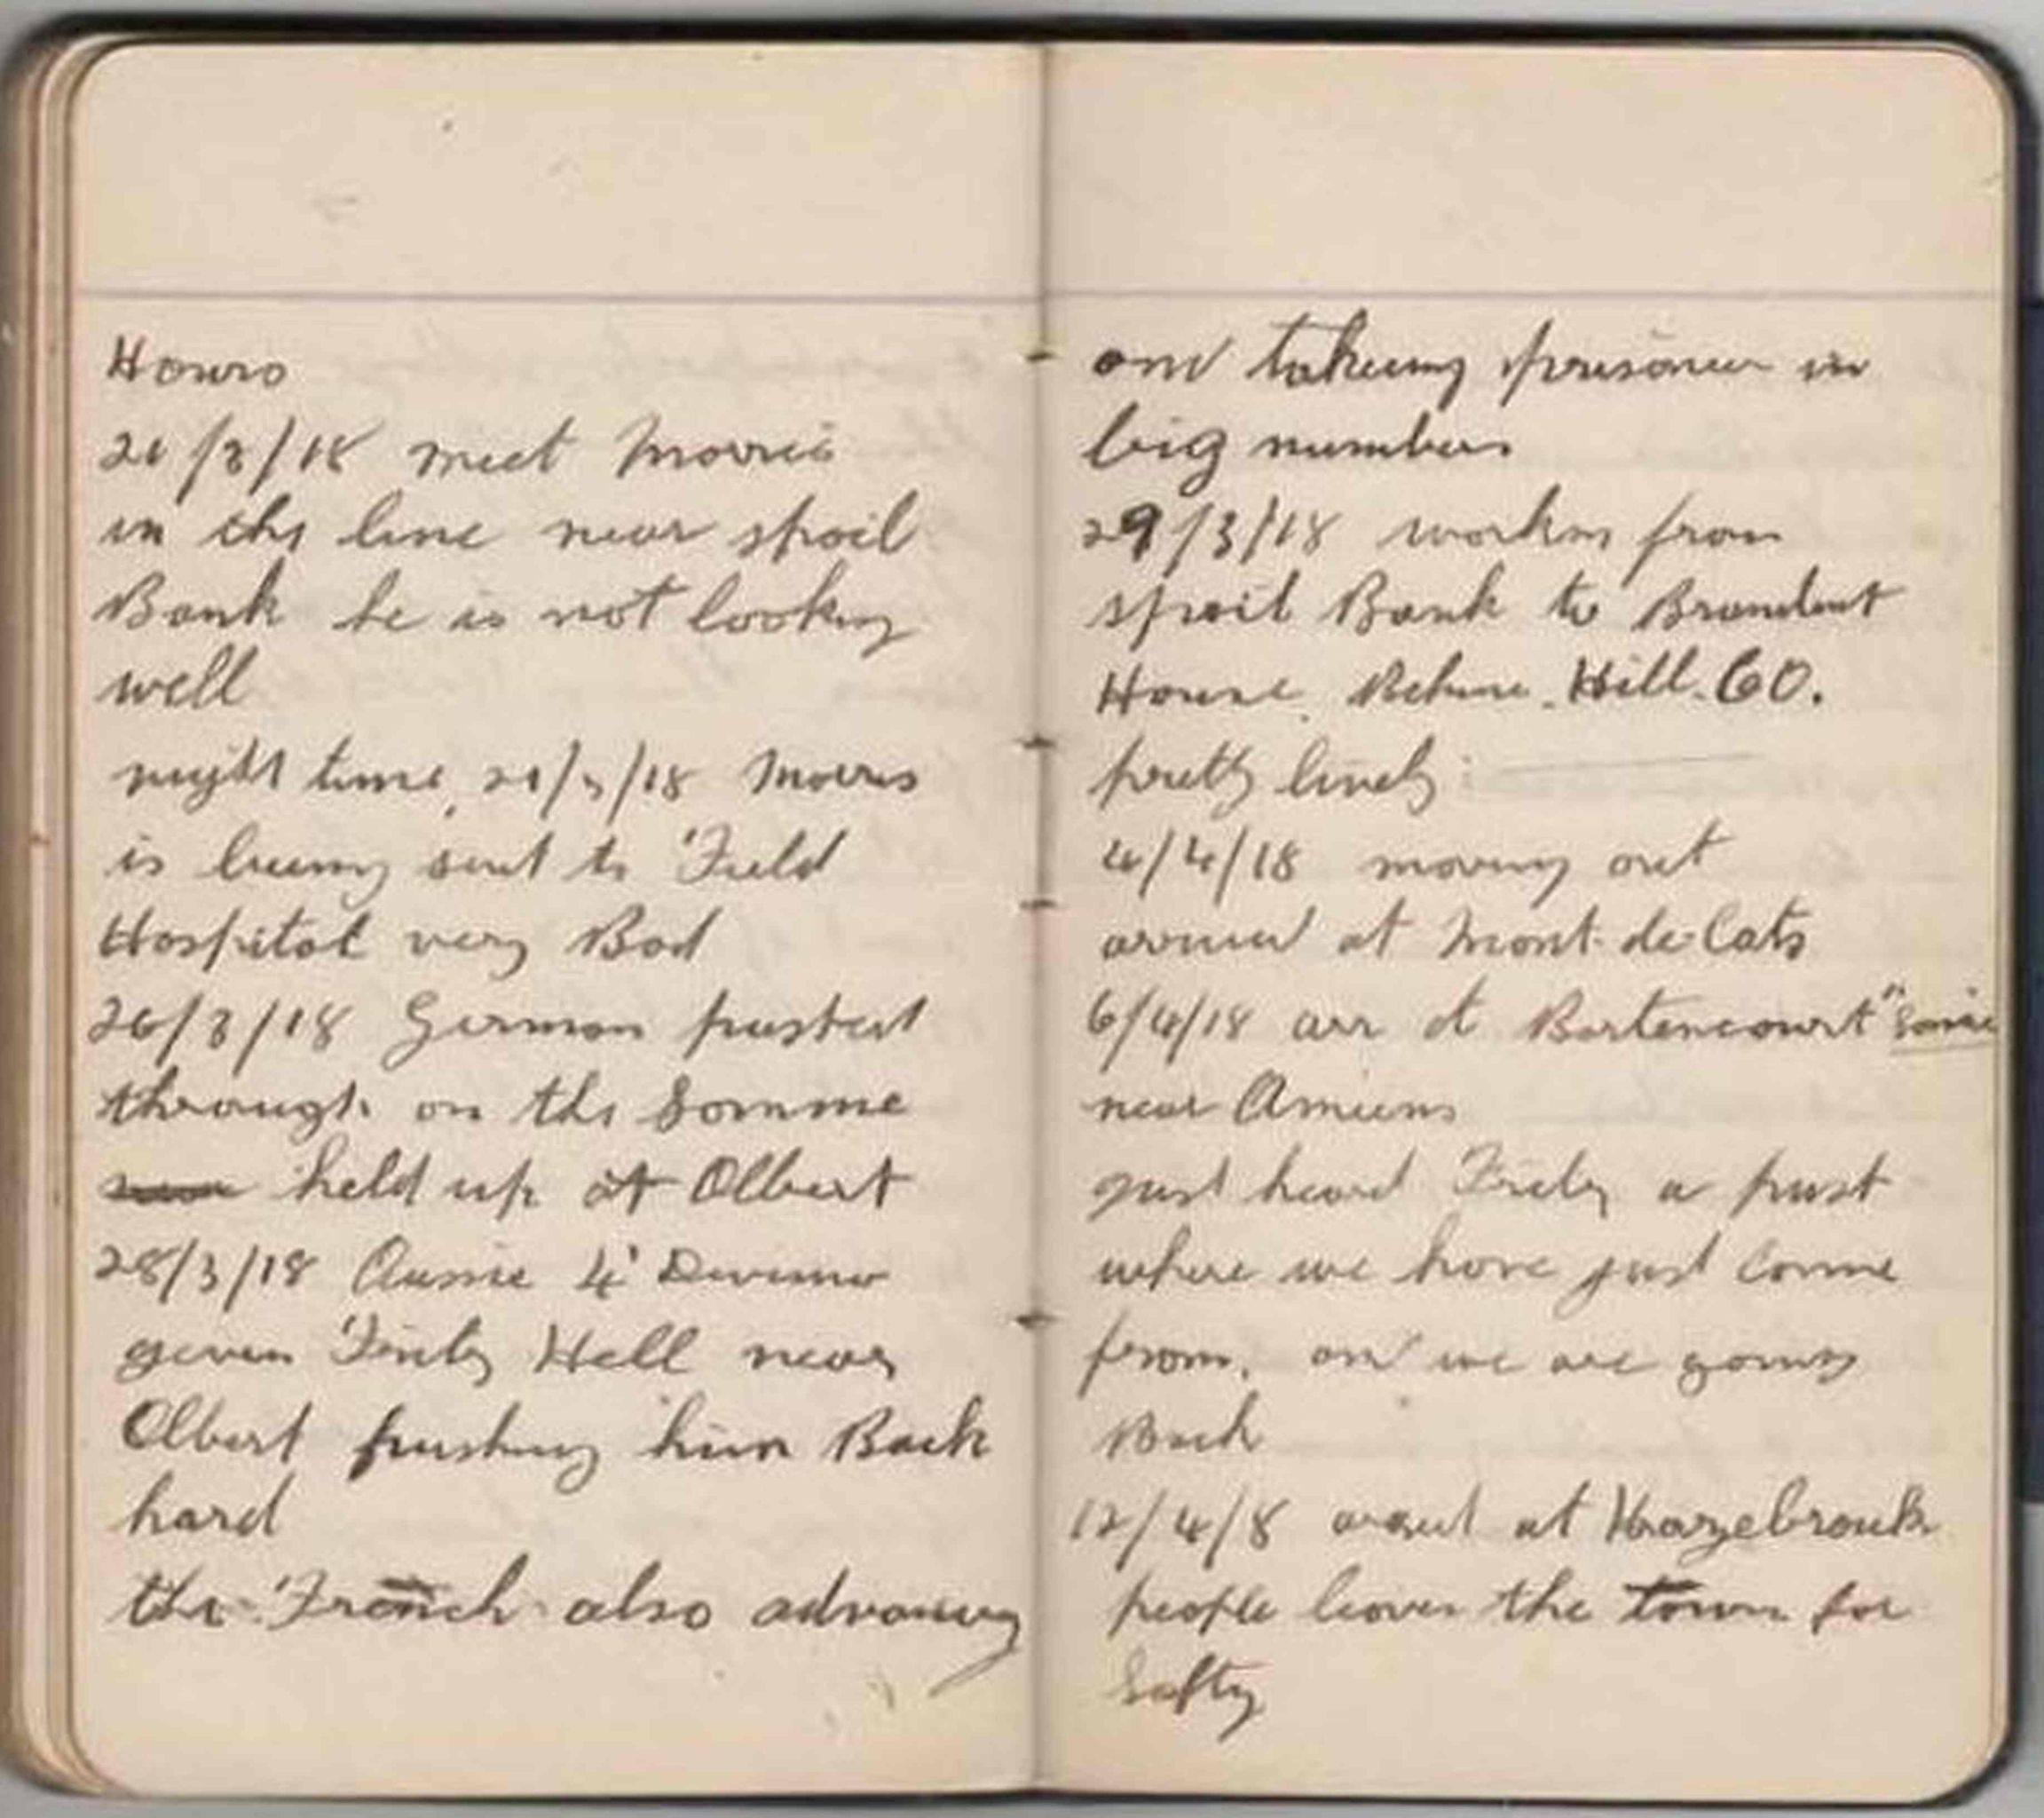 Hours
21/3/18 meet Morris
in the line near spoil
Bank he is not looking
well
night time, 21/3/18 Morris
is being sent to Field
Hospital very Bad
26/3/18 German pushed
through on the Somme
held up at Albert
28/3/18 Aussie 4' Division
given Fritz Hell near
Albert pushing him Back
hard
the French also advancing
and takeing prisoner in
big numbers
29/3/18 working from
spoil Bank to
House. Hill 60.
pretty lively
4/4/18 moving out
arrived at Mont-de-Cats
6/4/18 arr at Bertencourt
near Amiens
just heard Fritz a push
where we have just come
from, and we are going
Back
12/4/8 at Hazebrouck
people leaven the town for
Safty